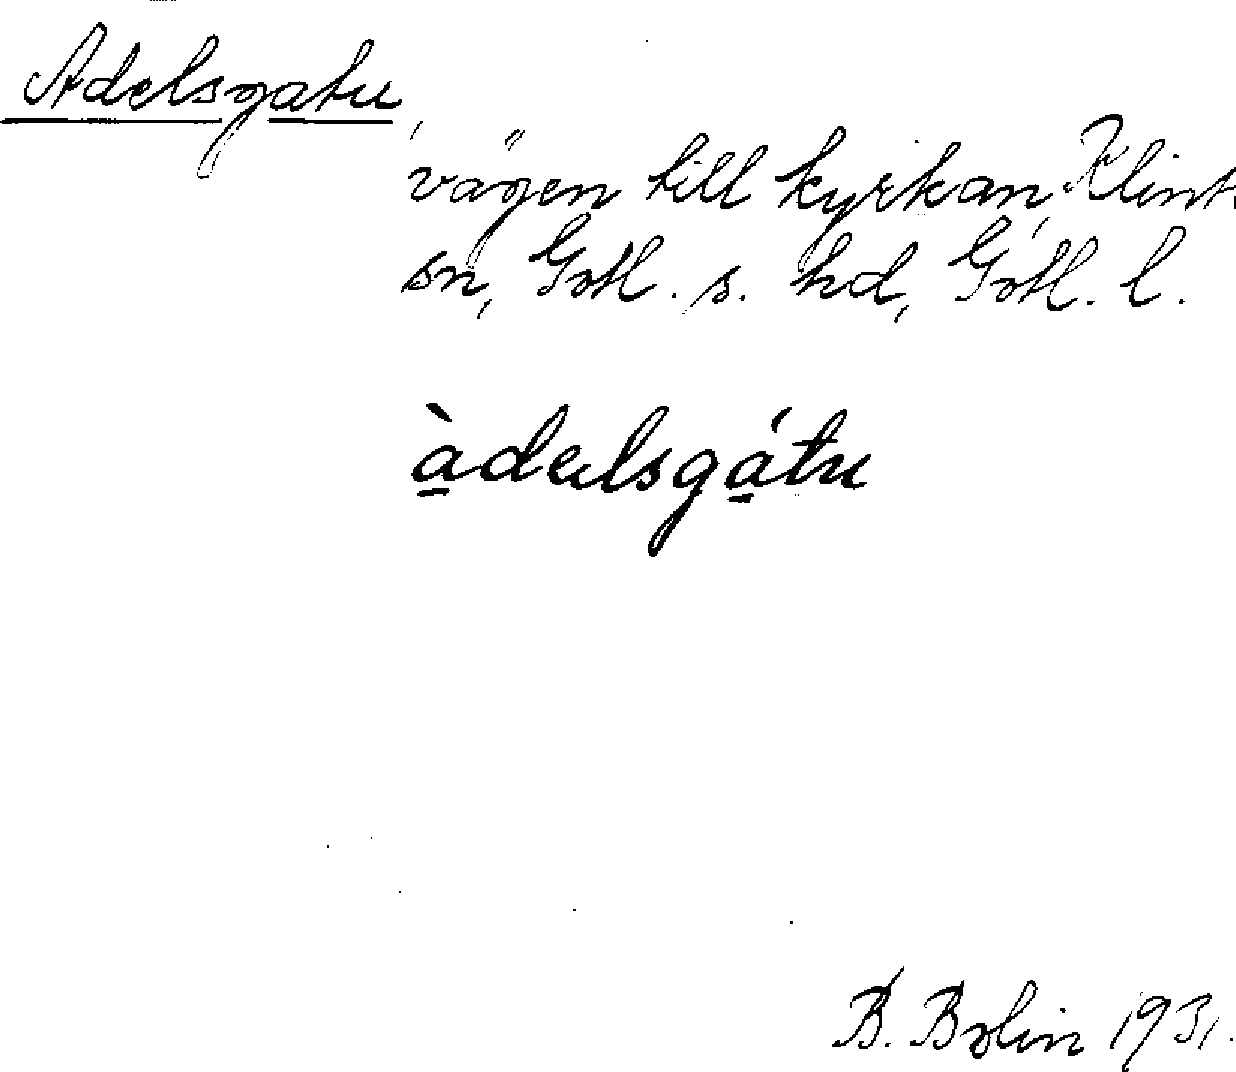 Adelsgatu,
vägen till kyrkan, Klint
sn, Gotl. s. hd, Gotl. l.
àdęlsgátu
B. Bolin 1931.